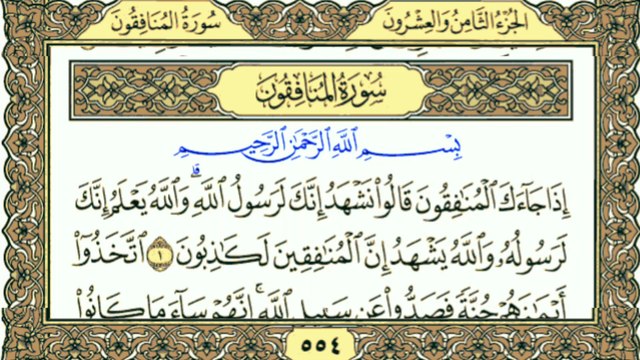 الجُزْءُ الثَّامِنُ وَالعِشْرُونَ
سُورَةُ المُنَافِقُونَ
سُورَةُ المُنَافِقُونَ
بِسْمِ ٱللَّهِ ٱلرَّحْمَٰنِ ٱلرَّحِيمِ
إِذَا جَآءَكَ ٱلْمُنَٰفِقُونَ قَالُوا۟ نَشْهَدُ إِنَّكَ لَرَسُولُ ٱللَّهِ ۗ وَٱللَّهُ يَعْلَمُ إِنَّكَ
لَرَسُولُهُۥ وَٱللَّهُ يَشْهَدُ إِنَّ ٱلْمُنَٰفِقِينَ لَكَٰذِبُونَ ١ ٱتَّخَذُوٓا۟
أَيْمَٰنَهُمْ جُنَّةً فَصَدُّوا۟ عَن سَبِيلِ ٱللَّهِ ۚ إِنَّهُمْ سَآءَ مَا كَانُوا۟
٥٥٤